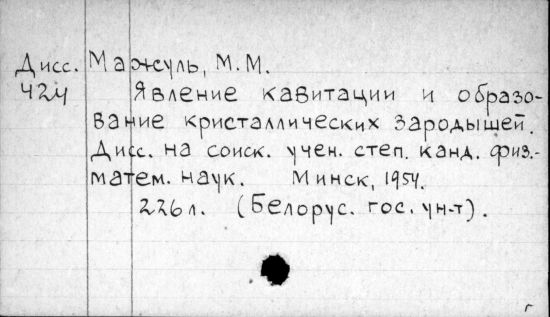 Дисс. Мажуль, М.М.
424 Явление кавитации и образо-
вание кристаллических зародышей.
Дисс. на соиск. учен. степ. канд. физ.-
матем. наук. Минск, 1954.
226 л. (Белорус. гос. ун-т).
г